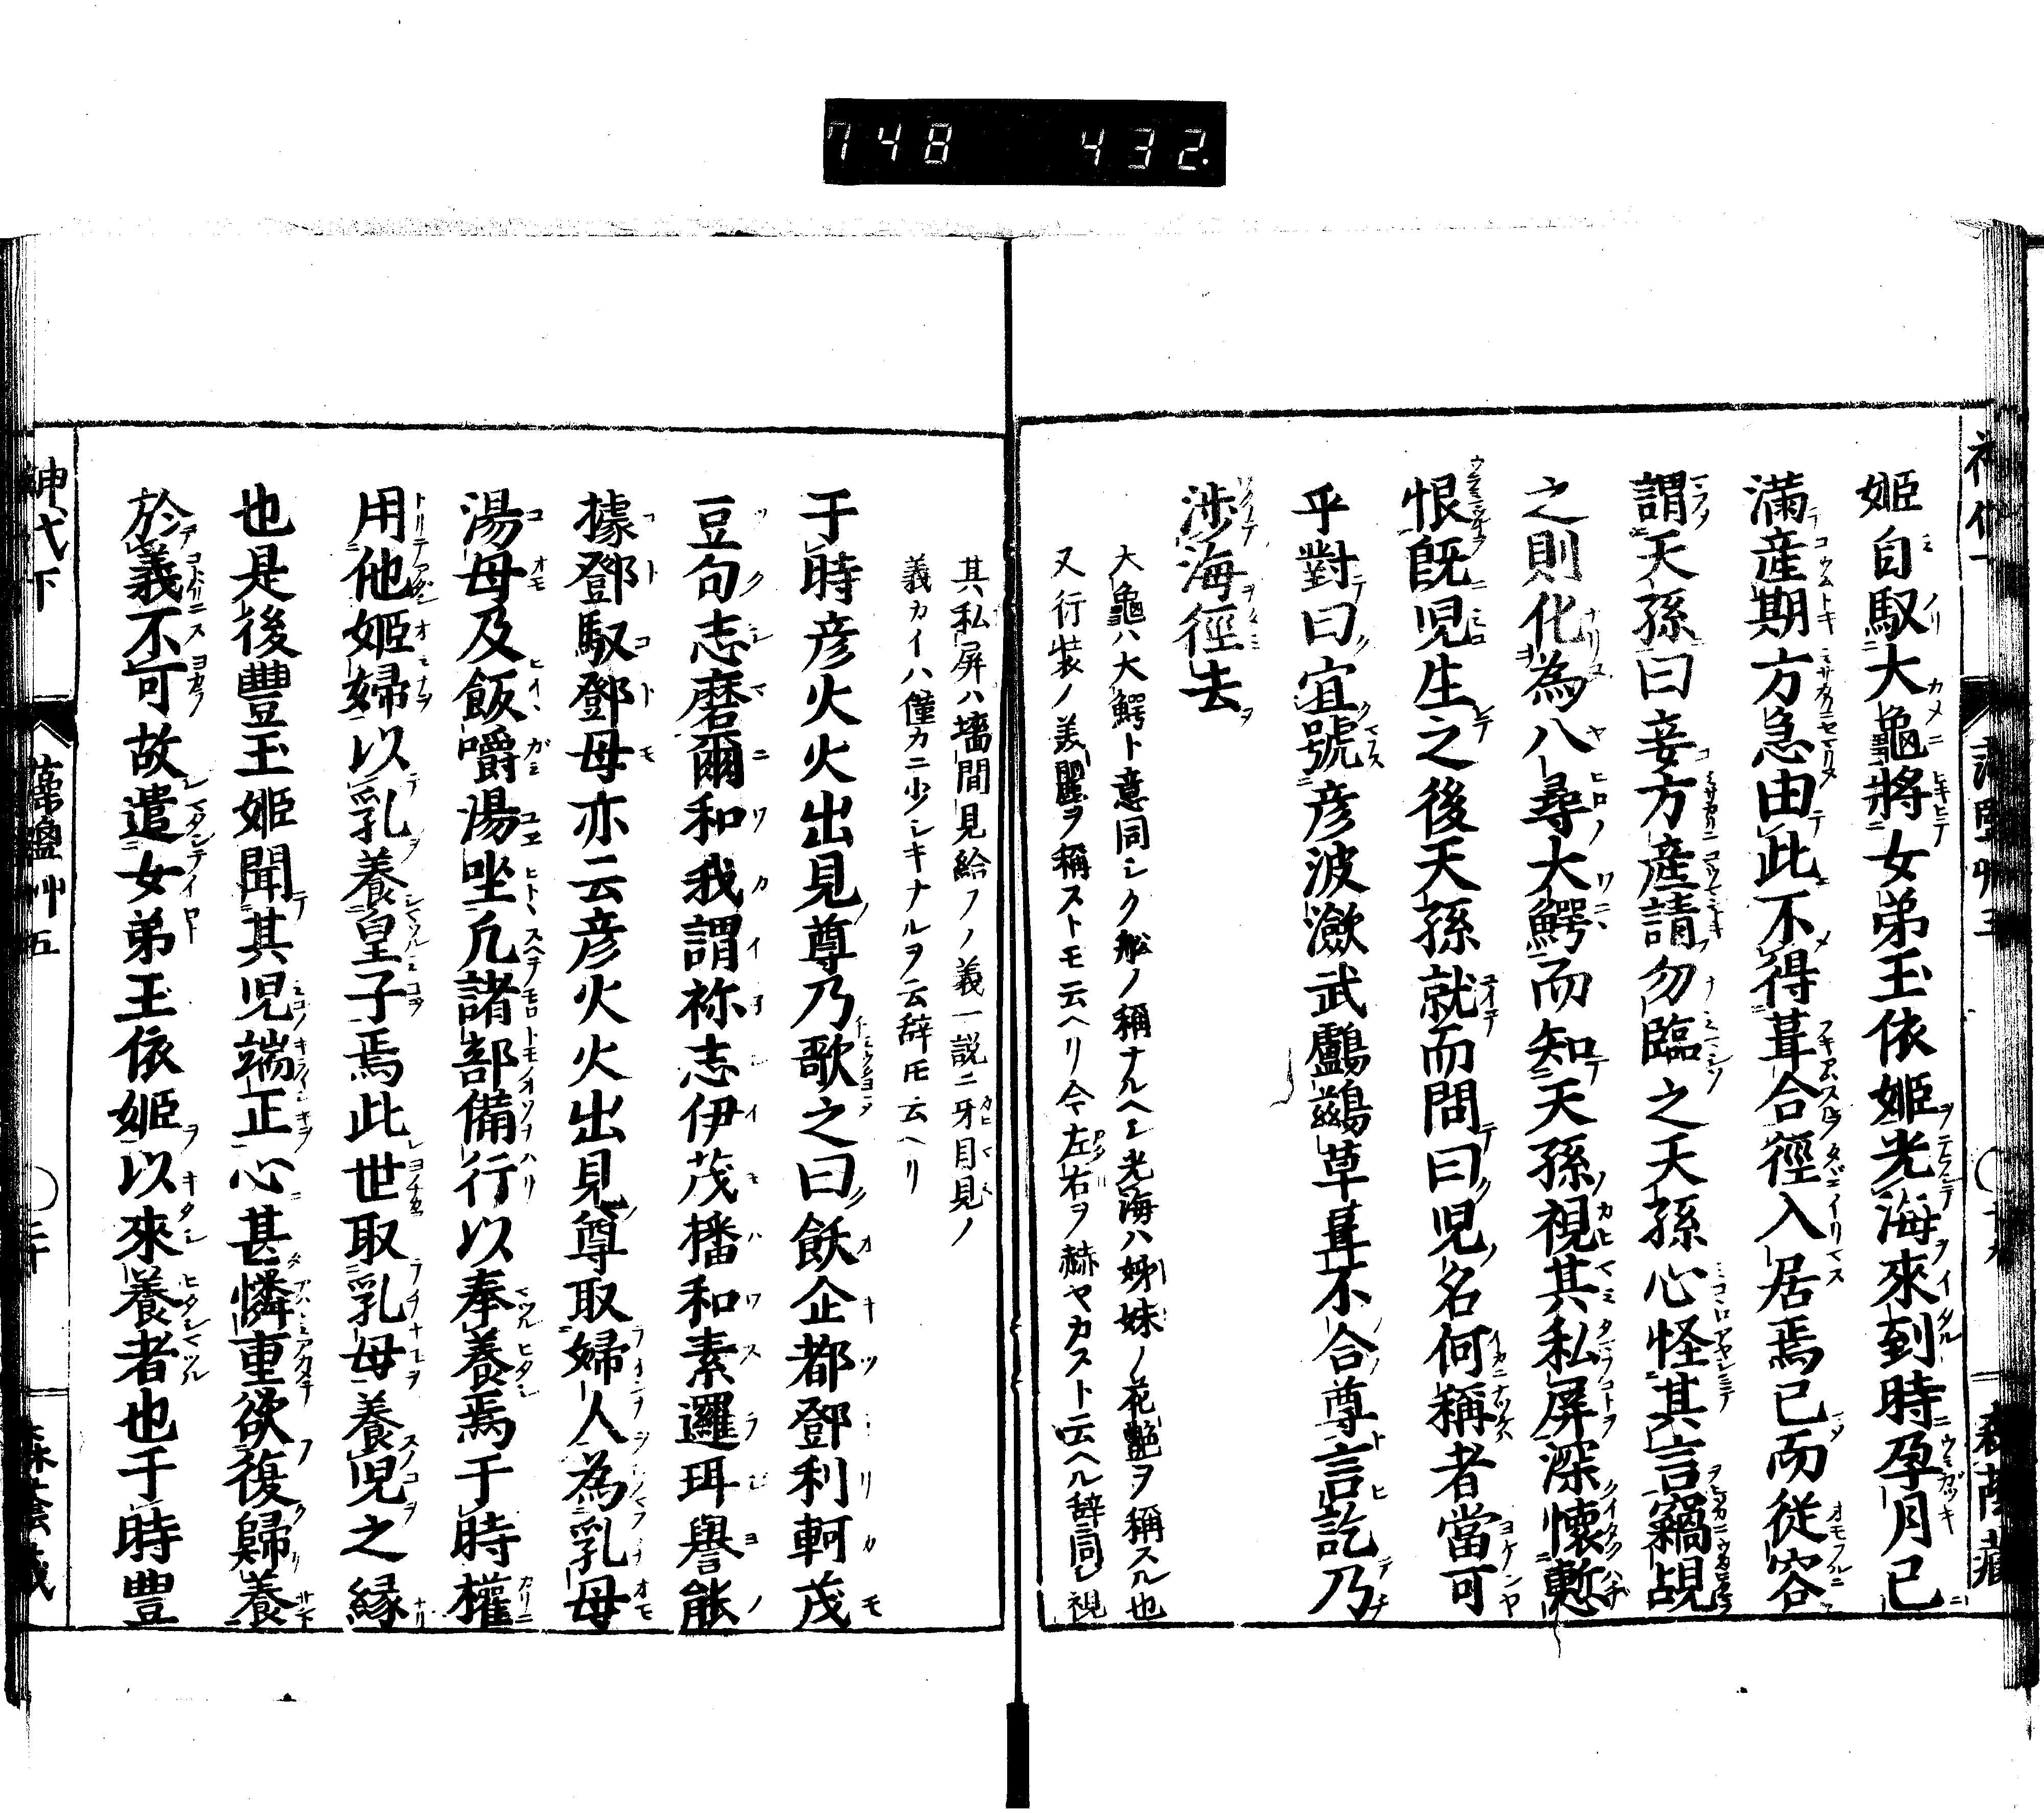 748 432.
姫自馭大龜將女弟玉依姫光海來到時孕月已
滿産期方急由此不得葺合徑入居焉已而從容
謂天孫曰妾方産請勿臨之天孫心怪其言竊覘
之則化為八尋大鰐而知天孫視其私屏深懐慙
恨既児生之後天孫就而問曰児名何稱者當可
乎對曰宜號彦波瀲武鸕鷀草葺不合尊言訖乃
渉海徑去
大龜ハ大鰐ト意同シク舩ノ稱ナルヘシ光海ハ姊妹ノ花艶ヲ稱スル也
又行装ノ美麗ヲ稱ストモ云ヘリ今左右ヲ赫ヤカスト云ヘル辞同シ視
其私屏ハ墻間見給フノ義一説ニ牙目見ノ
義カイハ僅カニ少シキナルヲ云辞モ云ヘリ
于時彦火火出見尊乃歌之曰飫企都鄧利軻茂
豆句志磨爾和我謂祢志伊茂播和素邏珥譽能
據鄧馭鄧母亦云彦火火出見尊取婦人為乳母
湯母及飯嚼湯坐凡諸部備行以奉養焉于時權
用他姫婦以乳養皇子焉此世取乳母養児之縁
也是後豐玉姫聞其児端正心甚憐重欲復歸養
於義不可故遣女弟玉依姫以來養者也于時豊
神代下
藻鹽艸五